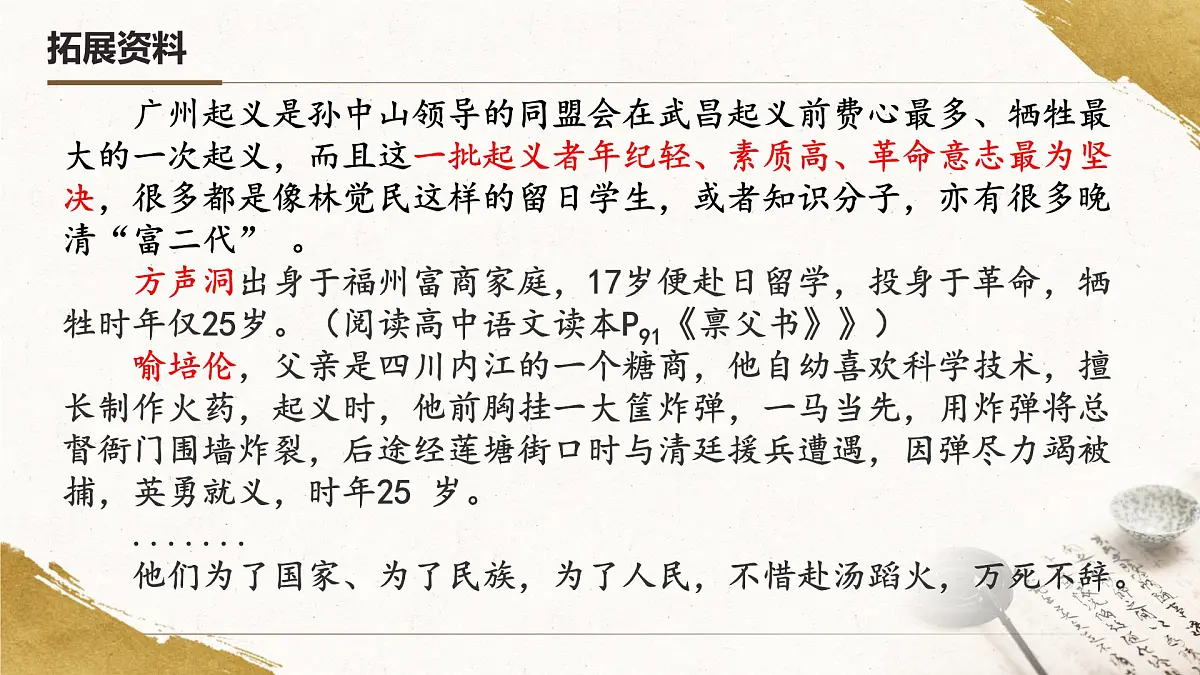 拓展资料
广州起义是孙中山领导的同盟会在武昌起义前费心最多、牺牲最
大的一次起义，而且这一批起义者年纪轻、素质高、革命意志最为坚
决，很多都是像林觉民这样的留日学生，或者知识分子，亦有很多晚
清“富二代” 。
方声洞出身于福州富商家庭，17岁便赴日留学，投身于革命，牺
牲时年仅25岁。（阅读高中语文读本P91《禀父书》》）
喻培伦，父亲是四川内江的一个糖商，他自幼喜欢科学技术，擅
长制作火药，起义时，他前胸挂一大筐炸弹，一马当先，用炸弹将总
督衙门围墙炸裂，后途经莲塘街口时与清廷援兵遭遇，因弹尽力竭被
捕，英勇就义，时年25 岁。
.......
他们为了国家、为了民族，为了人民，不惜赴汤蹈火，万死不辞。